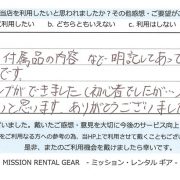 当店を利用したいと思われましたか？その他感想・ご要望が
利用したい　b. どちらともいえない　c. 利用はしない
付属品の内容など明記してあって
です。
ができました（初心者でしたが
って思います ありがとうございまし
いました。戴いたご感想・意見を大切に今後のサービス向上
をご利用になる方への参考の為、当HP上で利用させて戴くこともござ
是非、またのご利用機会を戴けましたら幸いです。
MISSION RENTAL GEAR　- ミッション・レンタル ギア -